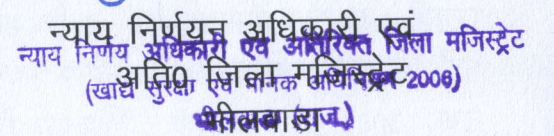 न्याय निर्णयन अधिकारी एवं
न्याय निर्णय अधिकारी एवं अतिरिक्त जिला मजिस्ट्रेट
अति0 जिला मजिस्ट्रेट
(खाद्य सुरक्षा एवं मानक अधिनियम 2006)
भीलवाडा
(राज.)